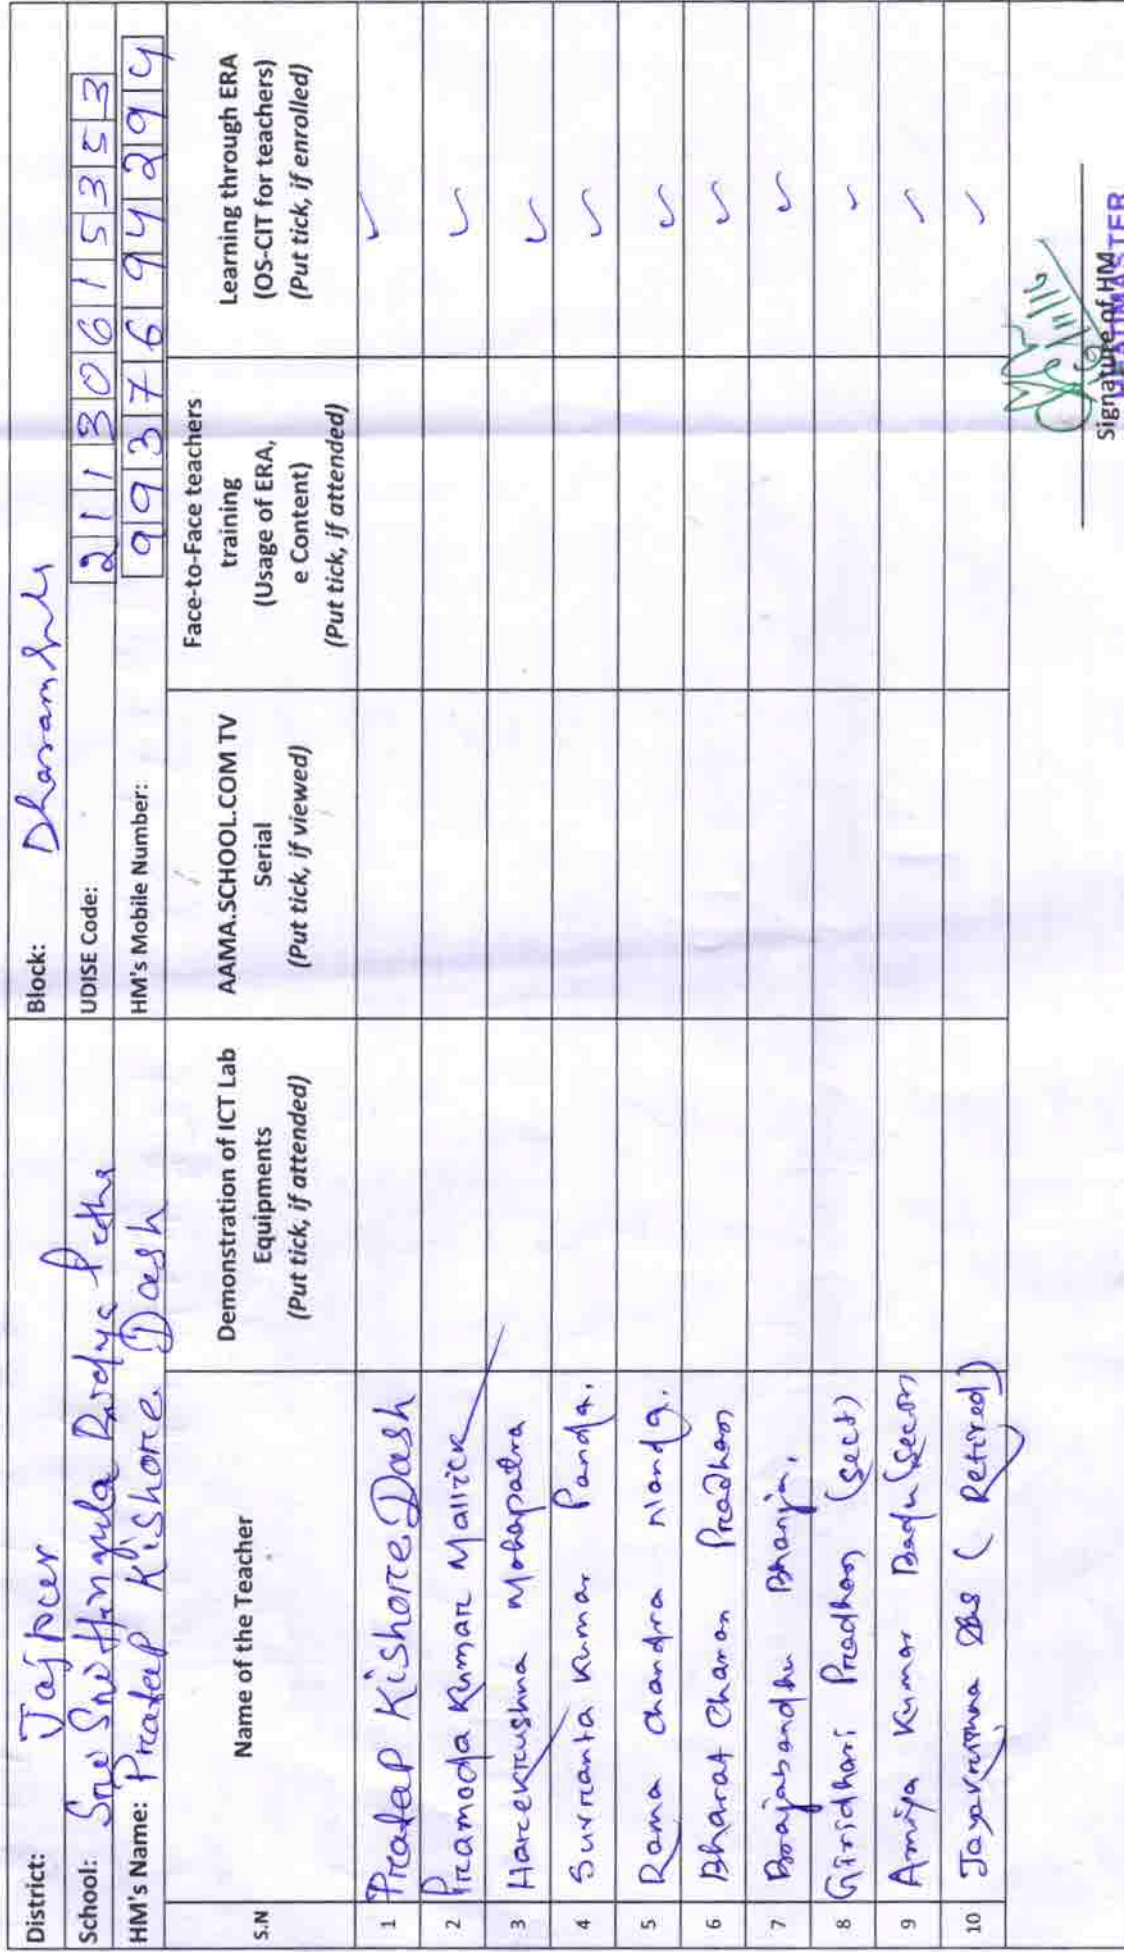 District: Jajpur Block: Dharamsala
School: Sri Sri Hingula Bidya Pitha UDISE Code: 21130615353
HM's Name: Pratap Kishore Dash HM's Mobile Number: 9937694294
S.N Name of the Teacher Demonstration of ICT Lab Equipments (Put tick, if attended) AAMA.SCHOOL.COM TV Serial (Put tick, if viewed) Face-to-Face teachers training (Usage of ERA, e Content) (Put tick, if attended) Learning through ERA (OS-CIT for teachers) (Put tick, if enrolled)
1 Pratap Kishore Dash ✓
2 Pramoda Kumar Mallick ✓
3 Harekrushna Mohapatra ✓
4 Kumar Panda. ✓
5 Rama Chandra ✓
6 Bharat Charan Pradhan ✓
7 Brajabandhu Bhanja. ✓
8 Giridhari Pradhan (Sect) ✓
9 Amiya Kumar ✓
10 Das (Retired) ✓
Signature of HM
HEADMASTER